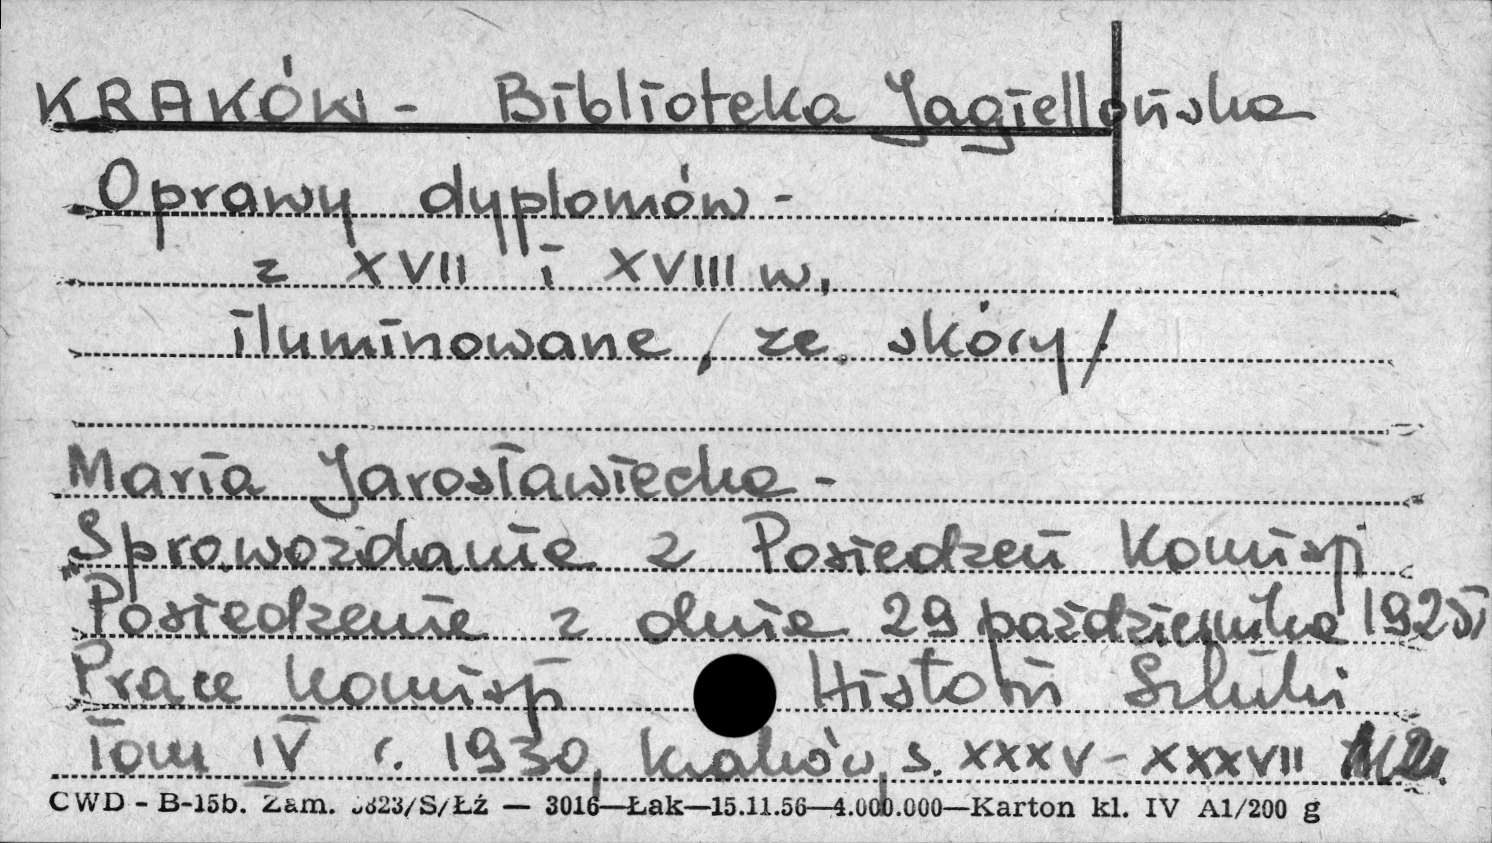 KRAKÓW - Biblioteka Jagiellońska
Oprawy dyplomów -
z XVII i XVIII w.
iluminowane, ze skóry/
Maria Jarosławiecka -
Sprawozdanie z Posiedzeń Komisji
Posiedzenie z dnia 29 października 1925
Prace Komisji Historii Sztuki
Tom IV r. 1930, Kraków, s. XXXV - XXXVII
CWD - B-15b. Zam. 5823/S/ŁŹ — 3016—Łak—15.11.56—4.000.000—Karton kl. IV A1/200 g